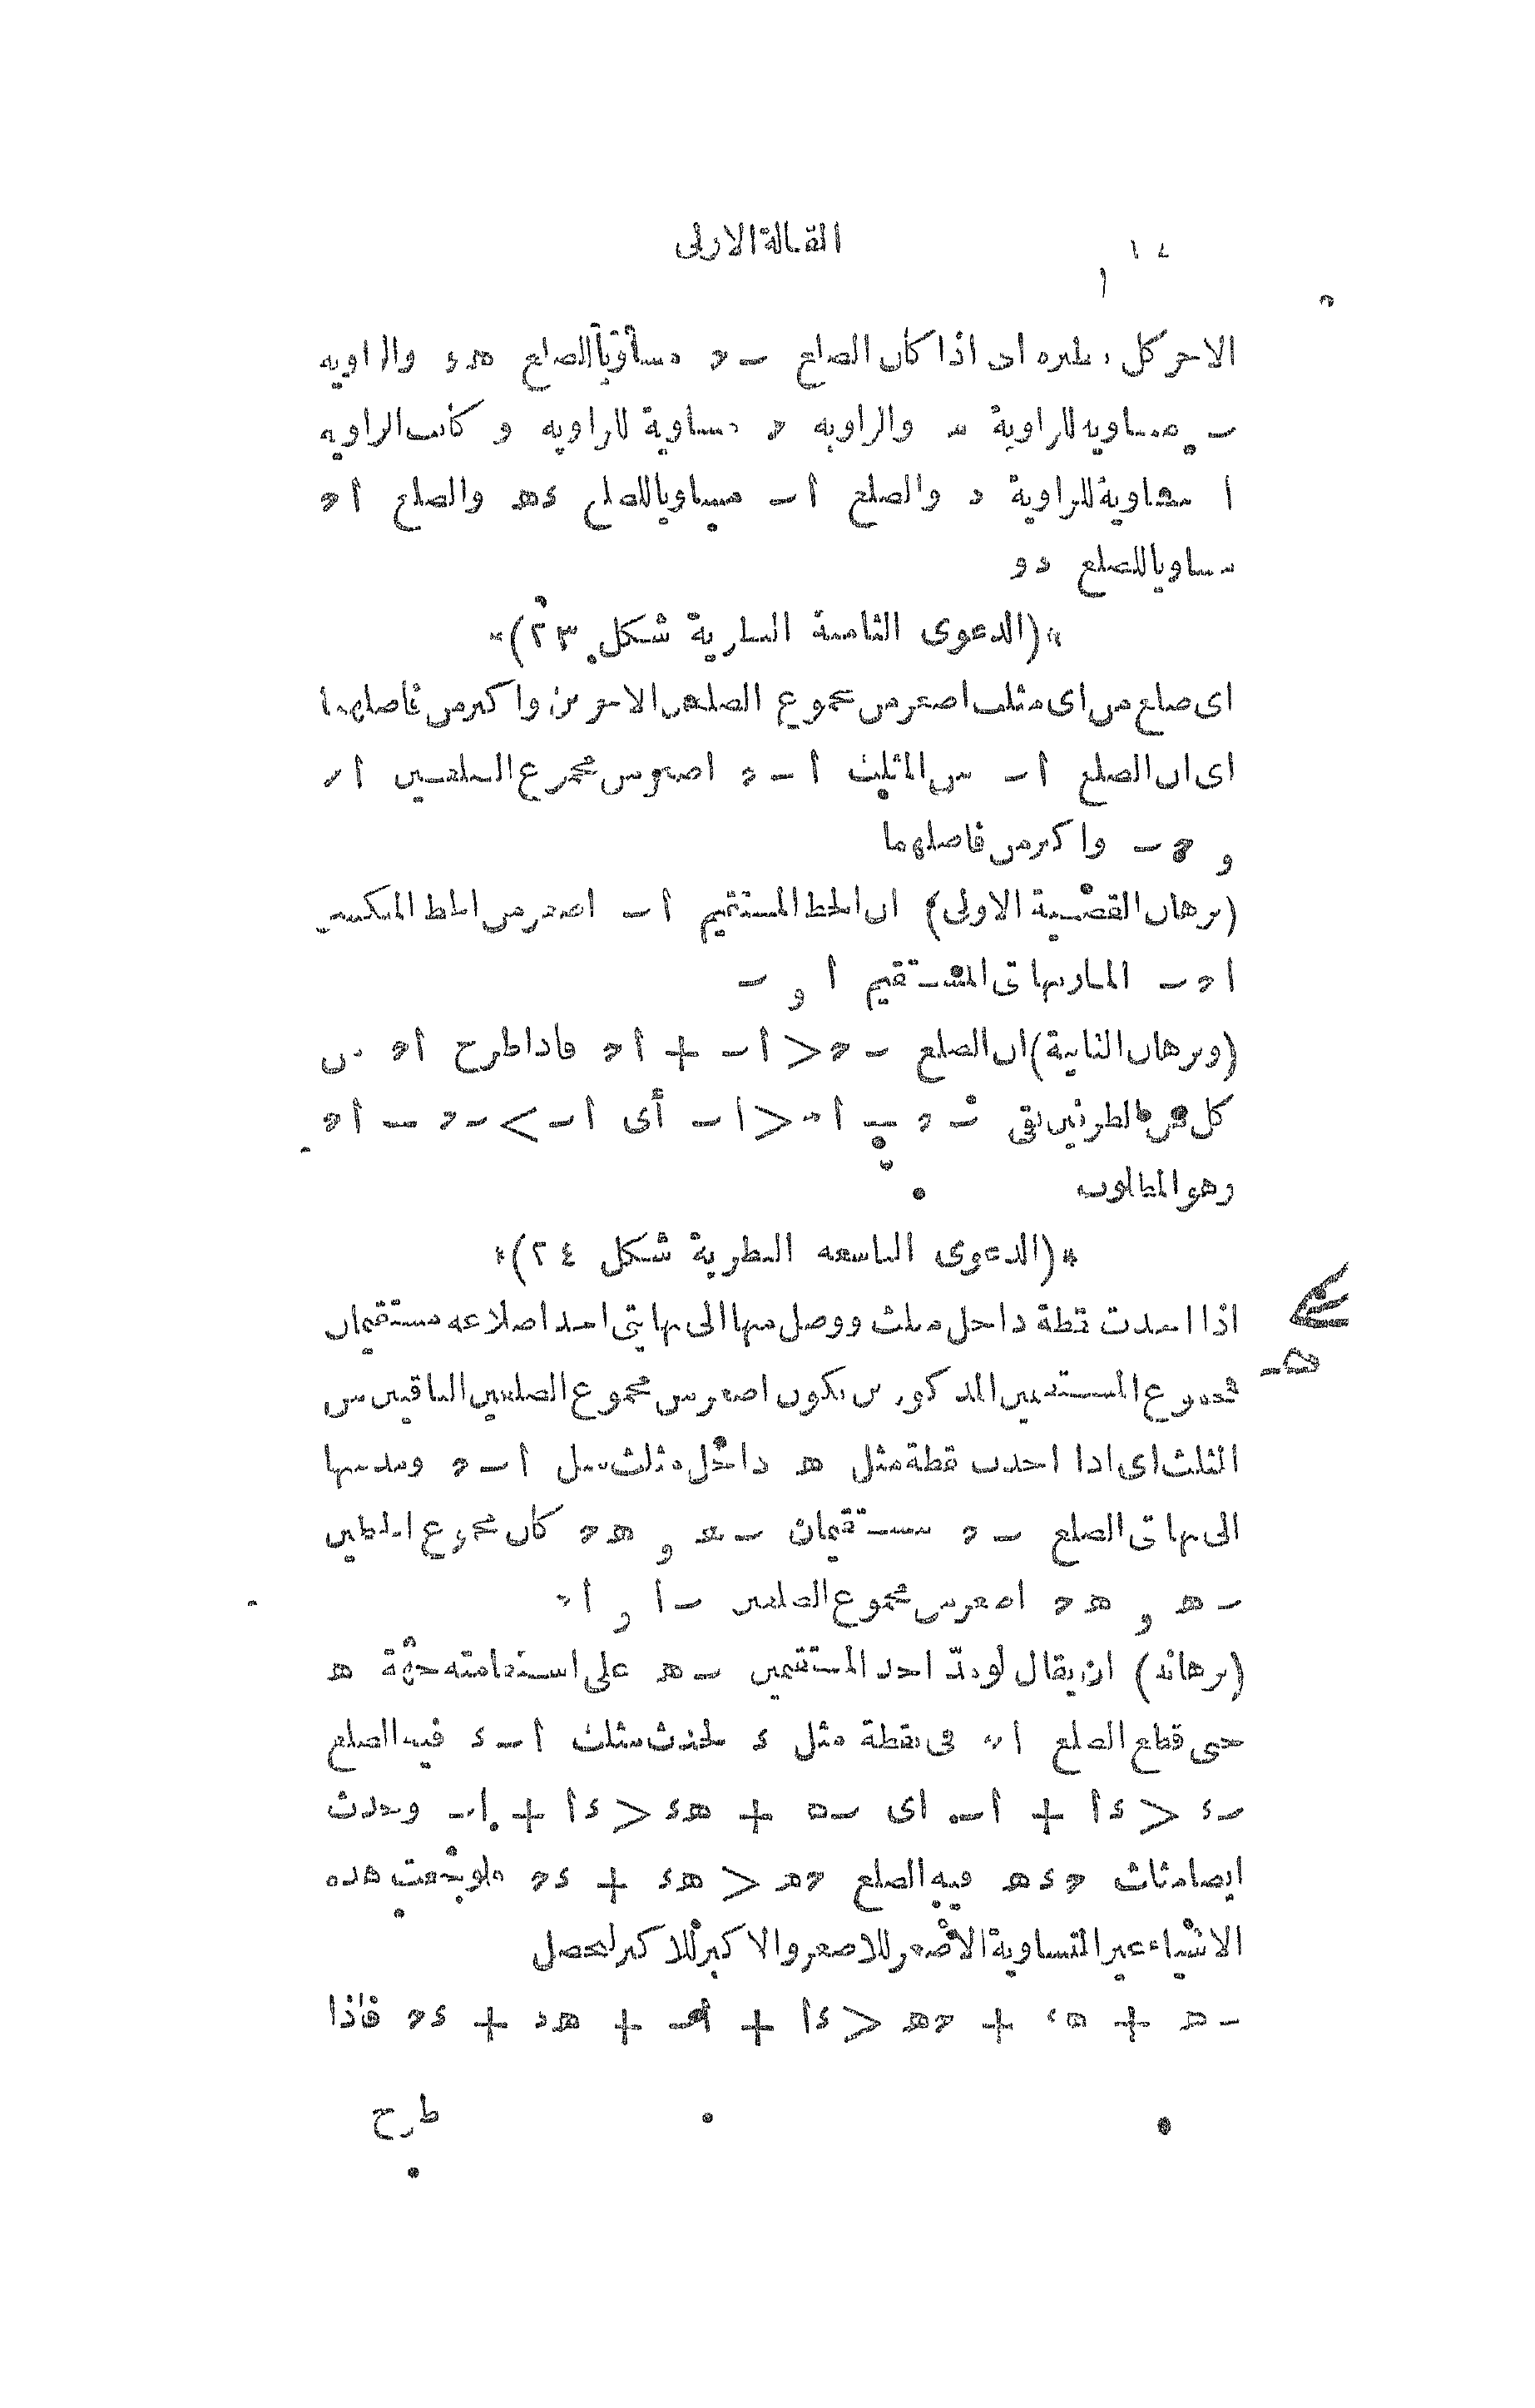 المقالة الاولى
الاخر كل نظيره اى اذا كان الضلع ب ح مساويا للضلع ه و والزاوية
ب مساوية للزاوية ه والزاوية ح مساوية للزاوية و كانت الزاوية
أ مساوية للزاوية د والضلع أ ب مساويا للضلع د ه والضلع أ ح
مساويا للضلع د و
*(الدعوى الثامنة النظرية شكل ٢٣)*
اى ضلع من اى مثلث اصغر من مجموع الضلعين الاخرين واكبر من فاضلهما
اى ان الضلع أ ب من المثلث أ ب ح اصغر من مجموع الضلعين أ ح
و ح ب واكبر من فاضلهما
(برهان القضية الاولى) ان الخط المستقيم أ ب اصغر من الخط المنكسر
أ ح ب المار بنهايتى المستقيم أ و ب
(وبرهان الثانية) ان الضلع ب ح < أ ب + أ ح فاذا طرح أ ح من
كل من الطرفين بقى ب ح – أ ح < أ ب أى أ ب > ب ح – أ ح
وهو المطلوب
*(الدعوى التاسعة النظرية شكل ٢٤)*
اذا اخذت نقطة داخل مثلث ووصل منها الى نهايتى احد اضلاعه مستقيمان
فمجموع المستقيمين المذكورين يكون اصغر من مجموع الضلعين الباقيين من
المثلث اى اذا اخذت نقطة مثل ه داخل مثلث مثل أ ب ح ومد منها
الى نهايتى الضلع ب ح مستقيمان ب ه و ه ح كان مجموع الخطين
ب ه و ه ح اصغر من مجموع الضلعين ب أ و أ ح
(برهانه) ان يقال لو مدّ احد المستقيمين ب ه على استقامته جهة ه
حتى قطع الضلع أ ح فى نقطة مثل د لحدث مثلث أ ب د فيه الضلع
ب د < د أ + أ ب اى ب ه + ه د < د أ + أ ب وحدث
ايضا مثلث ح د ه فيه الضلع ح ه < ه د + د ح فلو جمعت هذه
الاشياء غير المتساوية الاصغر للاصغر والاكبر للاكبر لحصل
ب ه + ه د + ح ه < د أ + أ ب + ه د + د ح فاذا
طرح